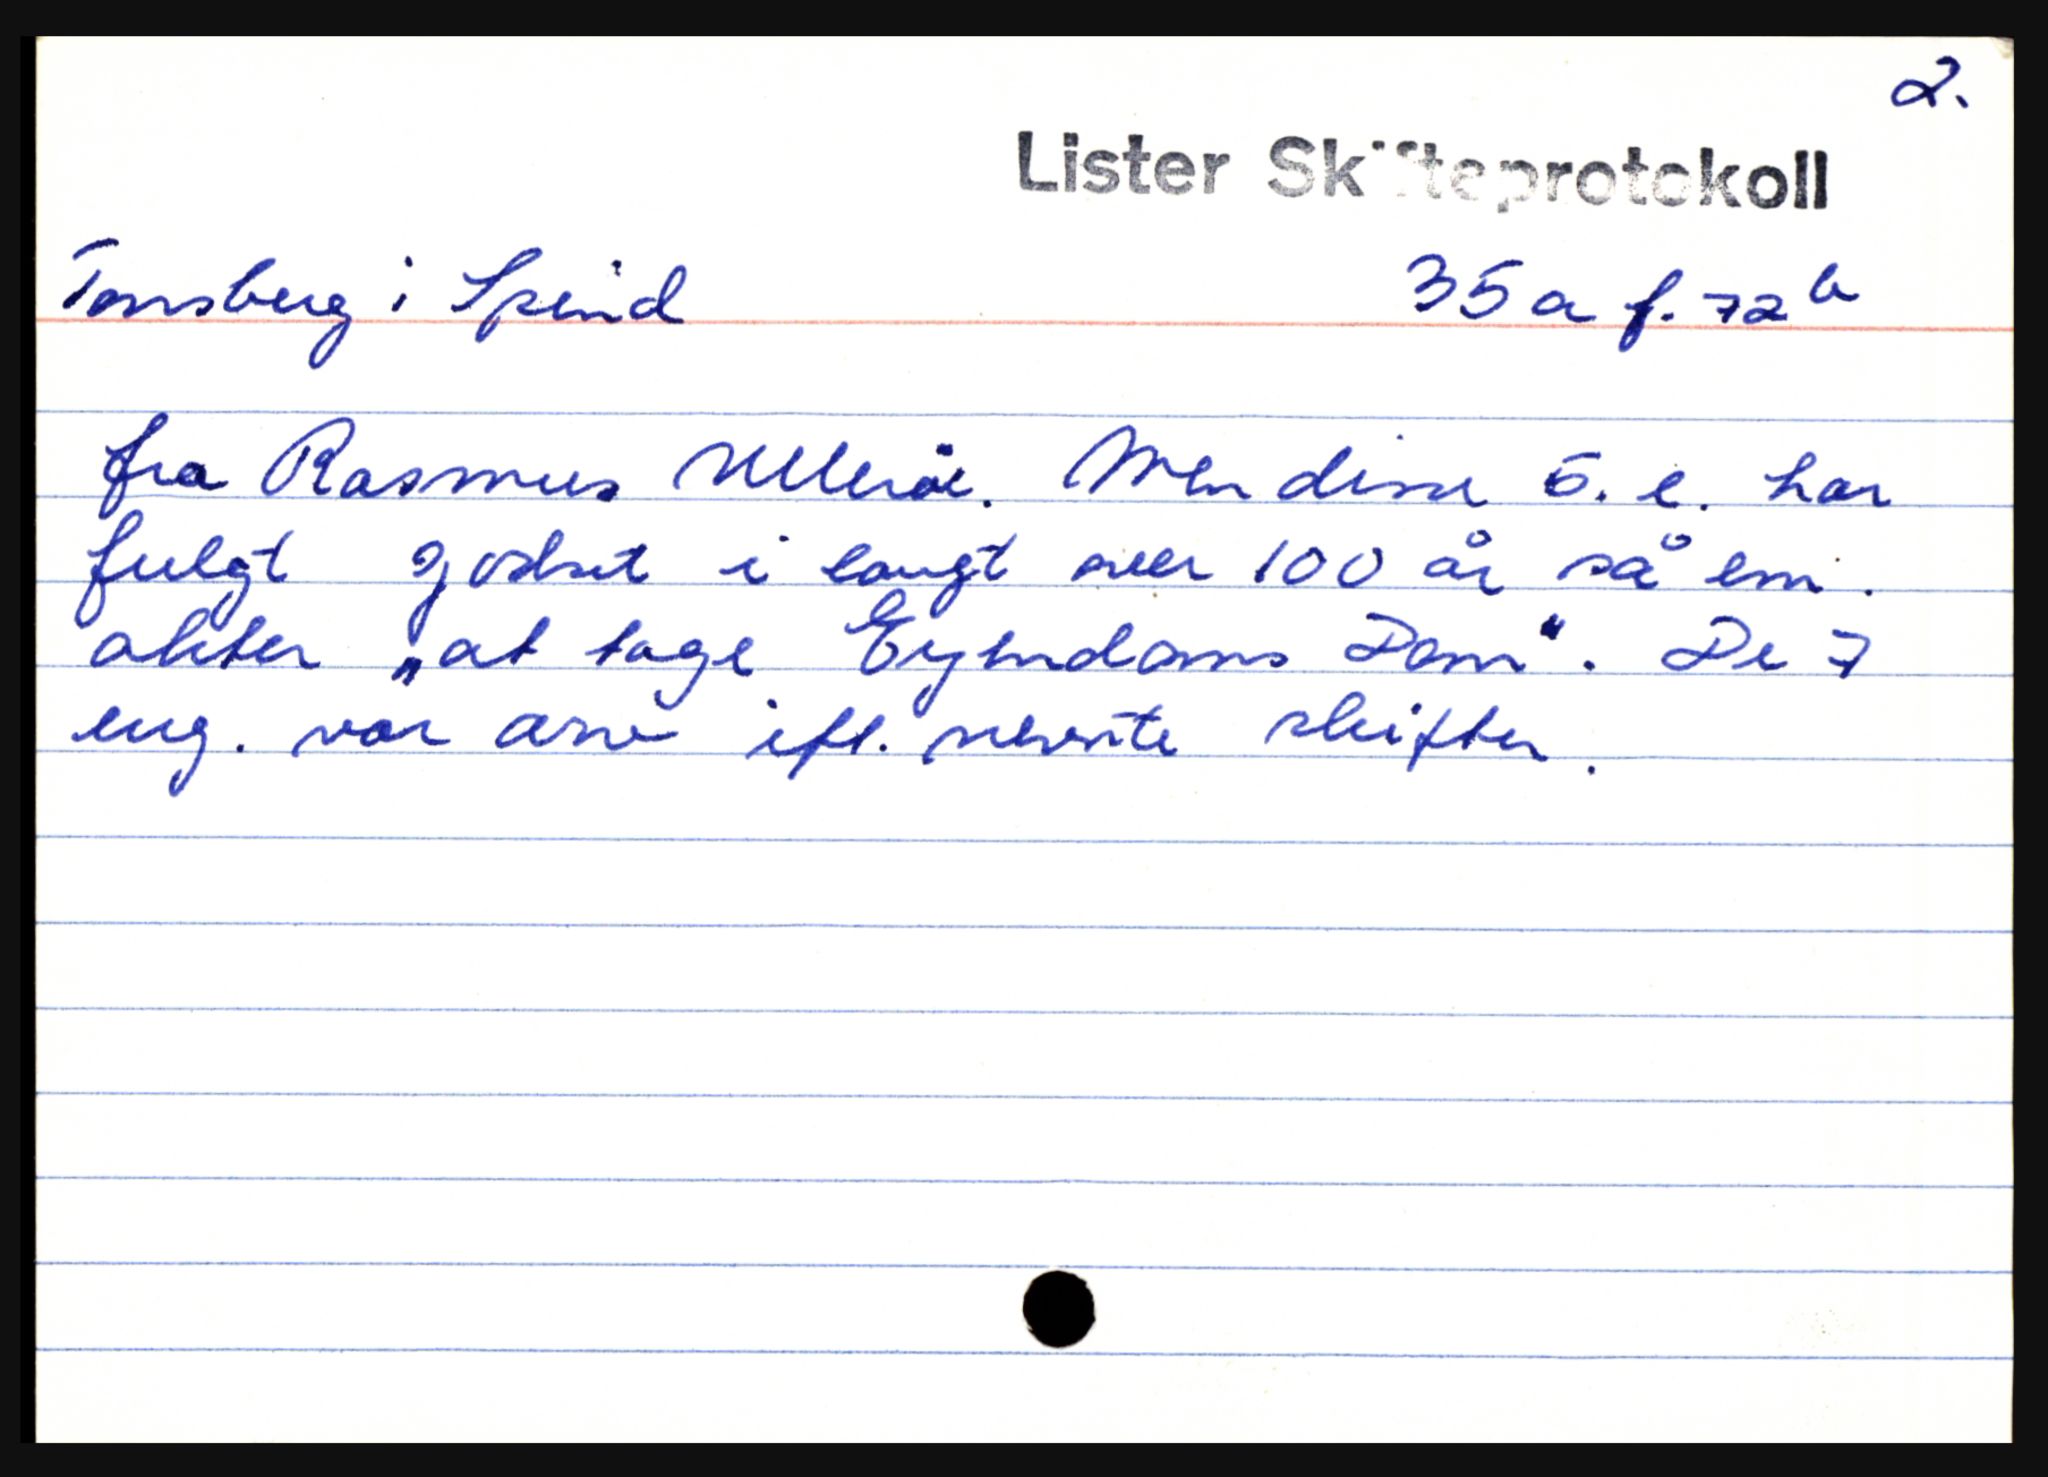 2.
Lister Skifteprotokoll
Tonsberg i Spind 35a f. 72b
fra Rasmus Ullerøe. Men disse 5. e. har
fulgt godset i langt over 100 år så em.
akter „at tage Eyendoms Dom“. De 7
eng. var arv ifl. nevnte skifter.